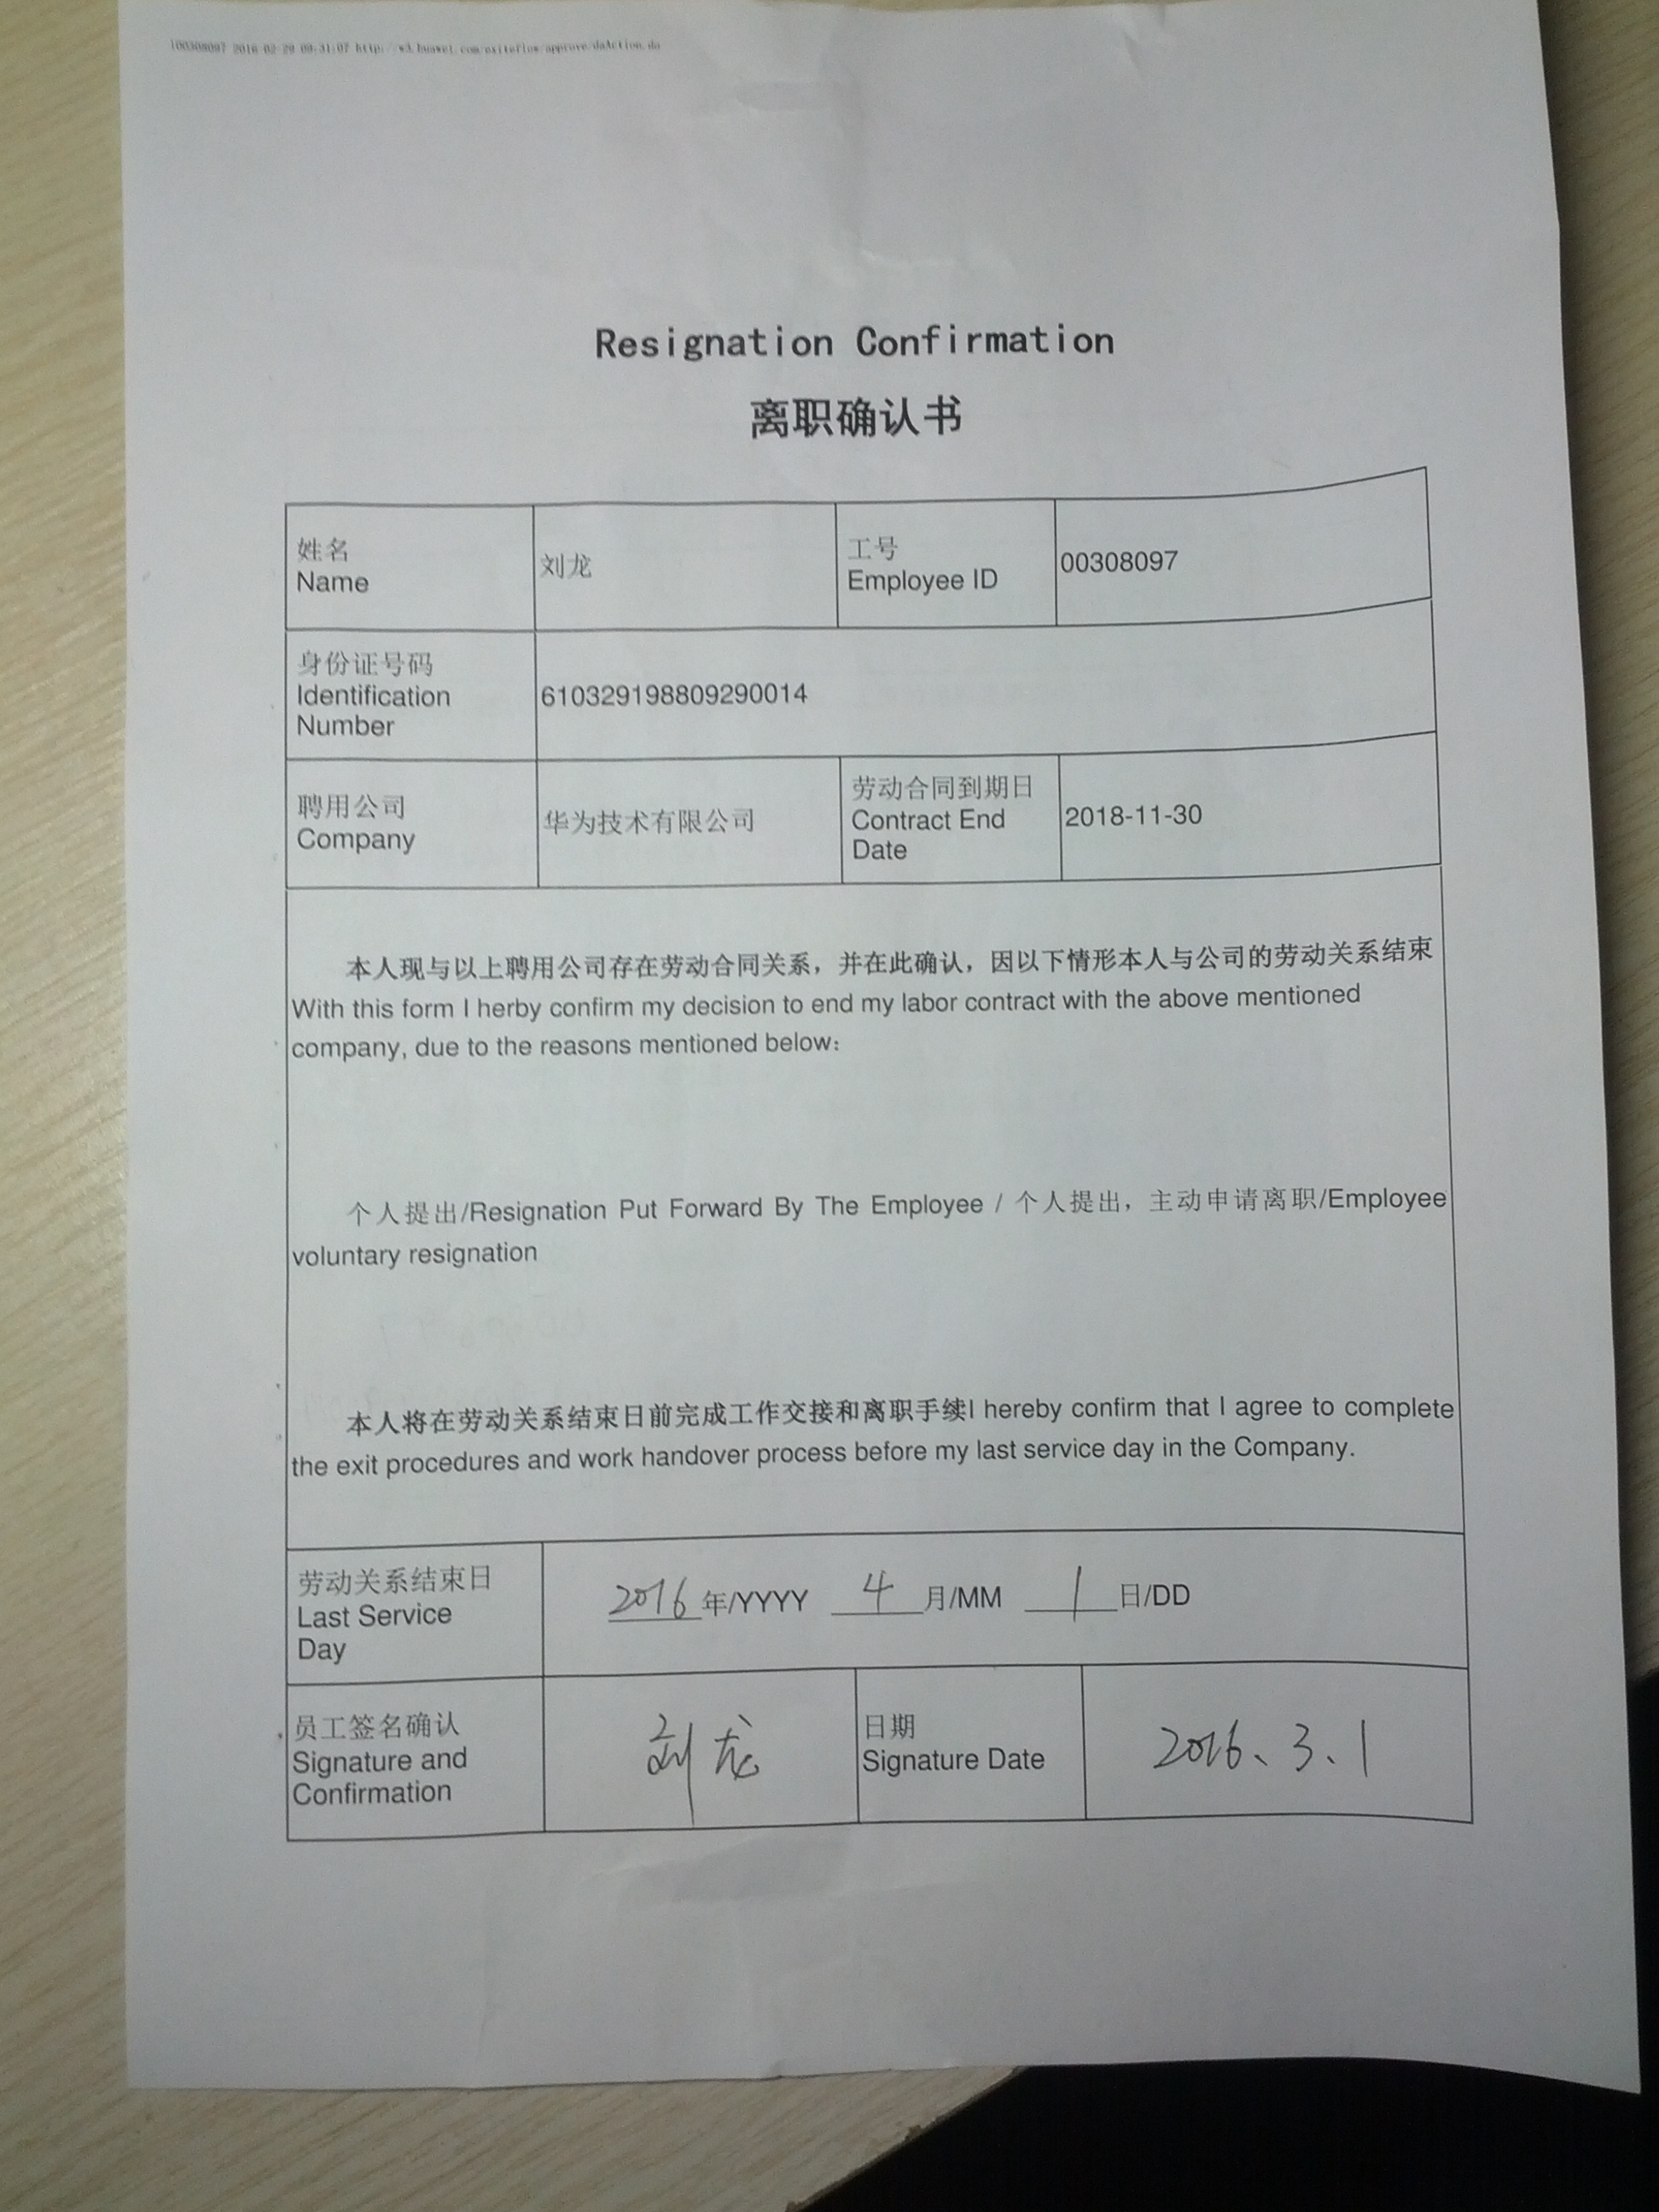 l00308097 2016-02-29 09:31:07 http://w3.huawei.com/exiteflow/approve/doAction.do
Resignation Confirmation
离职确认书
姓名
Name
刘龙
工号
Employee ID
00308097
身份证号码
Identification
Number
610329198809290014
聘用公司
Company
华为技术有限公司
劳动合同到期日
Contract End
Date
2018-11-30
本人现与以上聘用公司存在劳动合同关系，并在此确认，因以下情形本人与公司的劳动关系结束
With this form I herby confirm my decision to end my labor contract with the above mentioned
company, due to the reasons mentioned below:
个人提出/Resignation Put Forward By The Employee / 个人提出，主动申请离职/Employee
voluntary resignation
本人将在劳动关系结束日前完成工作交接和离职手续I hereby confirm that I agree to complete
the exit procedures and work handover process before my last service day in the Company.
劳动关系结束日
Last Service
Day
2016 年/YYYY 4 月/MM 1 日/DD
员工签名确认
Signature and
Confirmation
刘龙
日期
Signature Date
2016、3、1